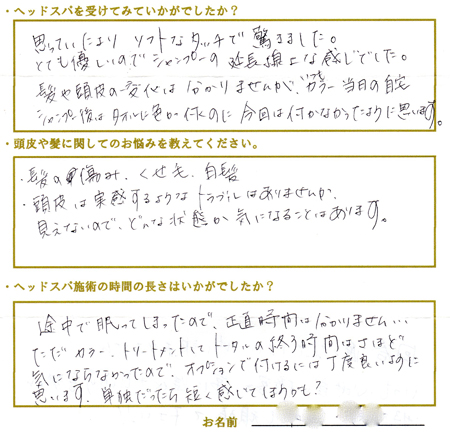 ・ヘッドスパを受けてみていかがでしたか？
思っていたより ソフトなタッチで 驚きました。
とても優しいので シャンプーの 延長線上な感じでした。
髪や頭皮の変化は 分かりませんが、カラー当日の自宅
シャンプー後は タオルに色が付くのに 今回は付かなかったように思います。
・頭皮や髪に関してのお悩みを教えてください。
・髪の傷み、くせ毛、白髪
・頭皮は実感するようなトラブルはありませんが、
見えないので、どんな状態か気になることはあります。
・ヘッドスパ施術の時間の長さはいかがでしたか？
途中で眠ってしまったので、正直時間は分かりません…
ただ カラー、トリートメントして トータルの終わる時間は さほど
気にならなかったので、オプションで付けるには 丁度良いように
思います。単独だったら 短く感じてしまうかも？
お名前